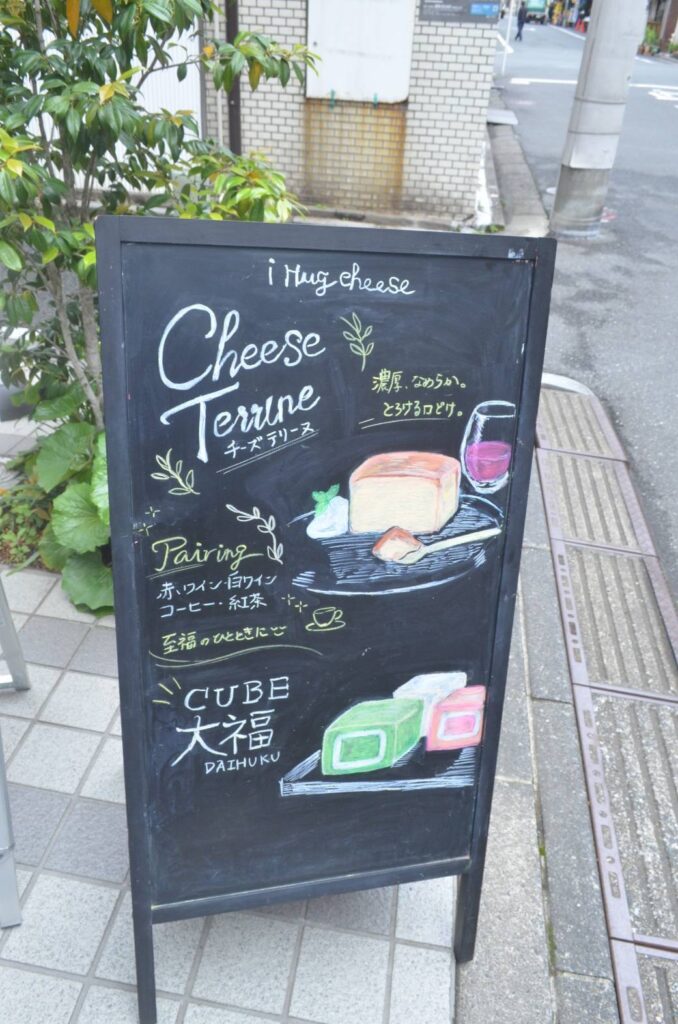 i Hug cheese
Cheese
Terrine
チーズテリーヌ
濃厚、なめらか。
とろける口どけ。
Pairing
赤ワイン・白ワイン
コーヒー・紅茶
至福のひとときに
CUBE
大福
DAIHUKU